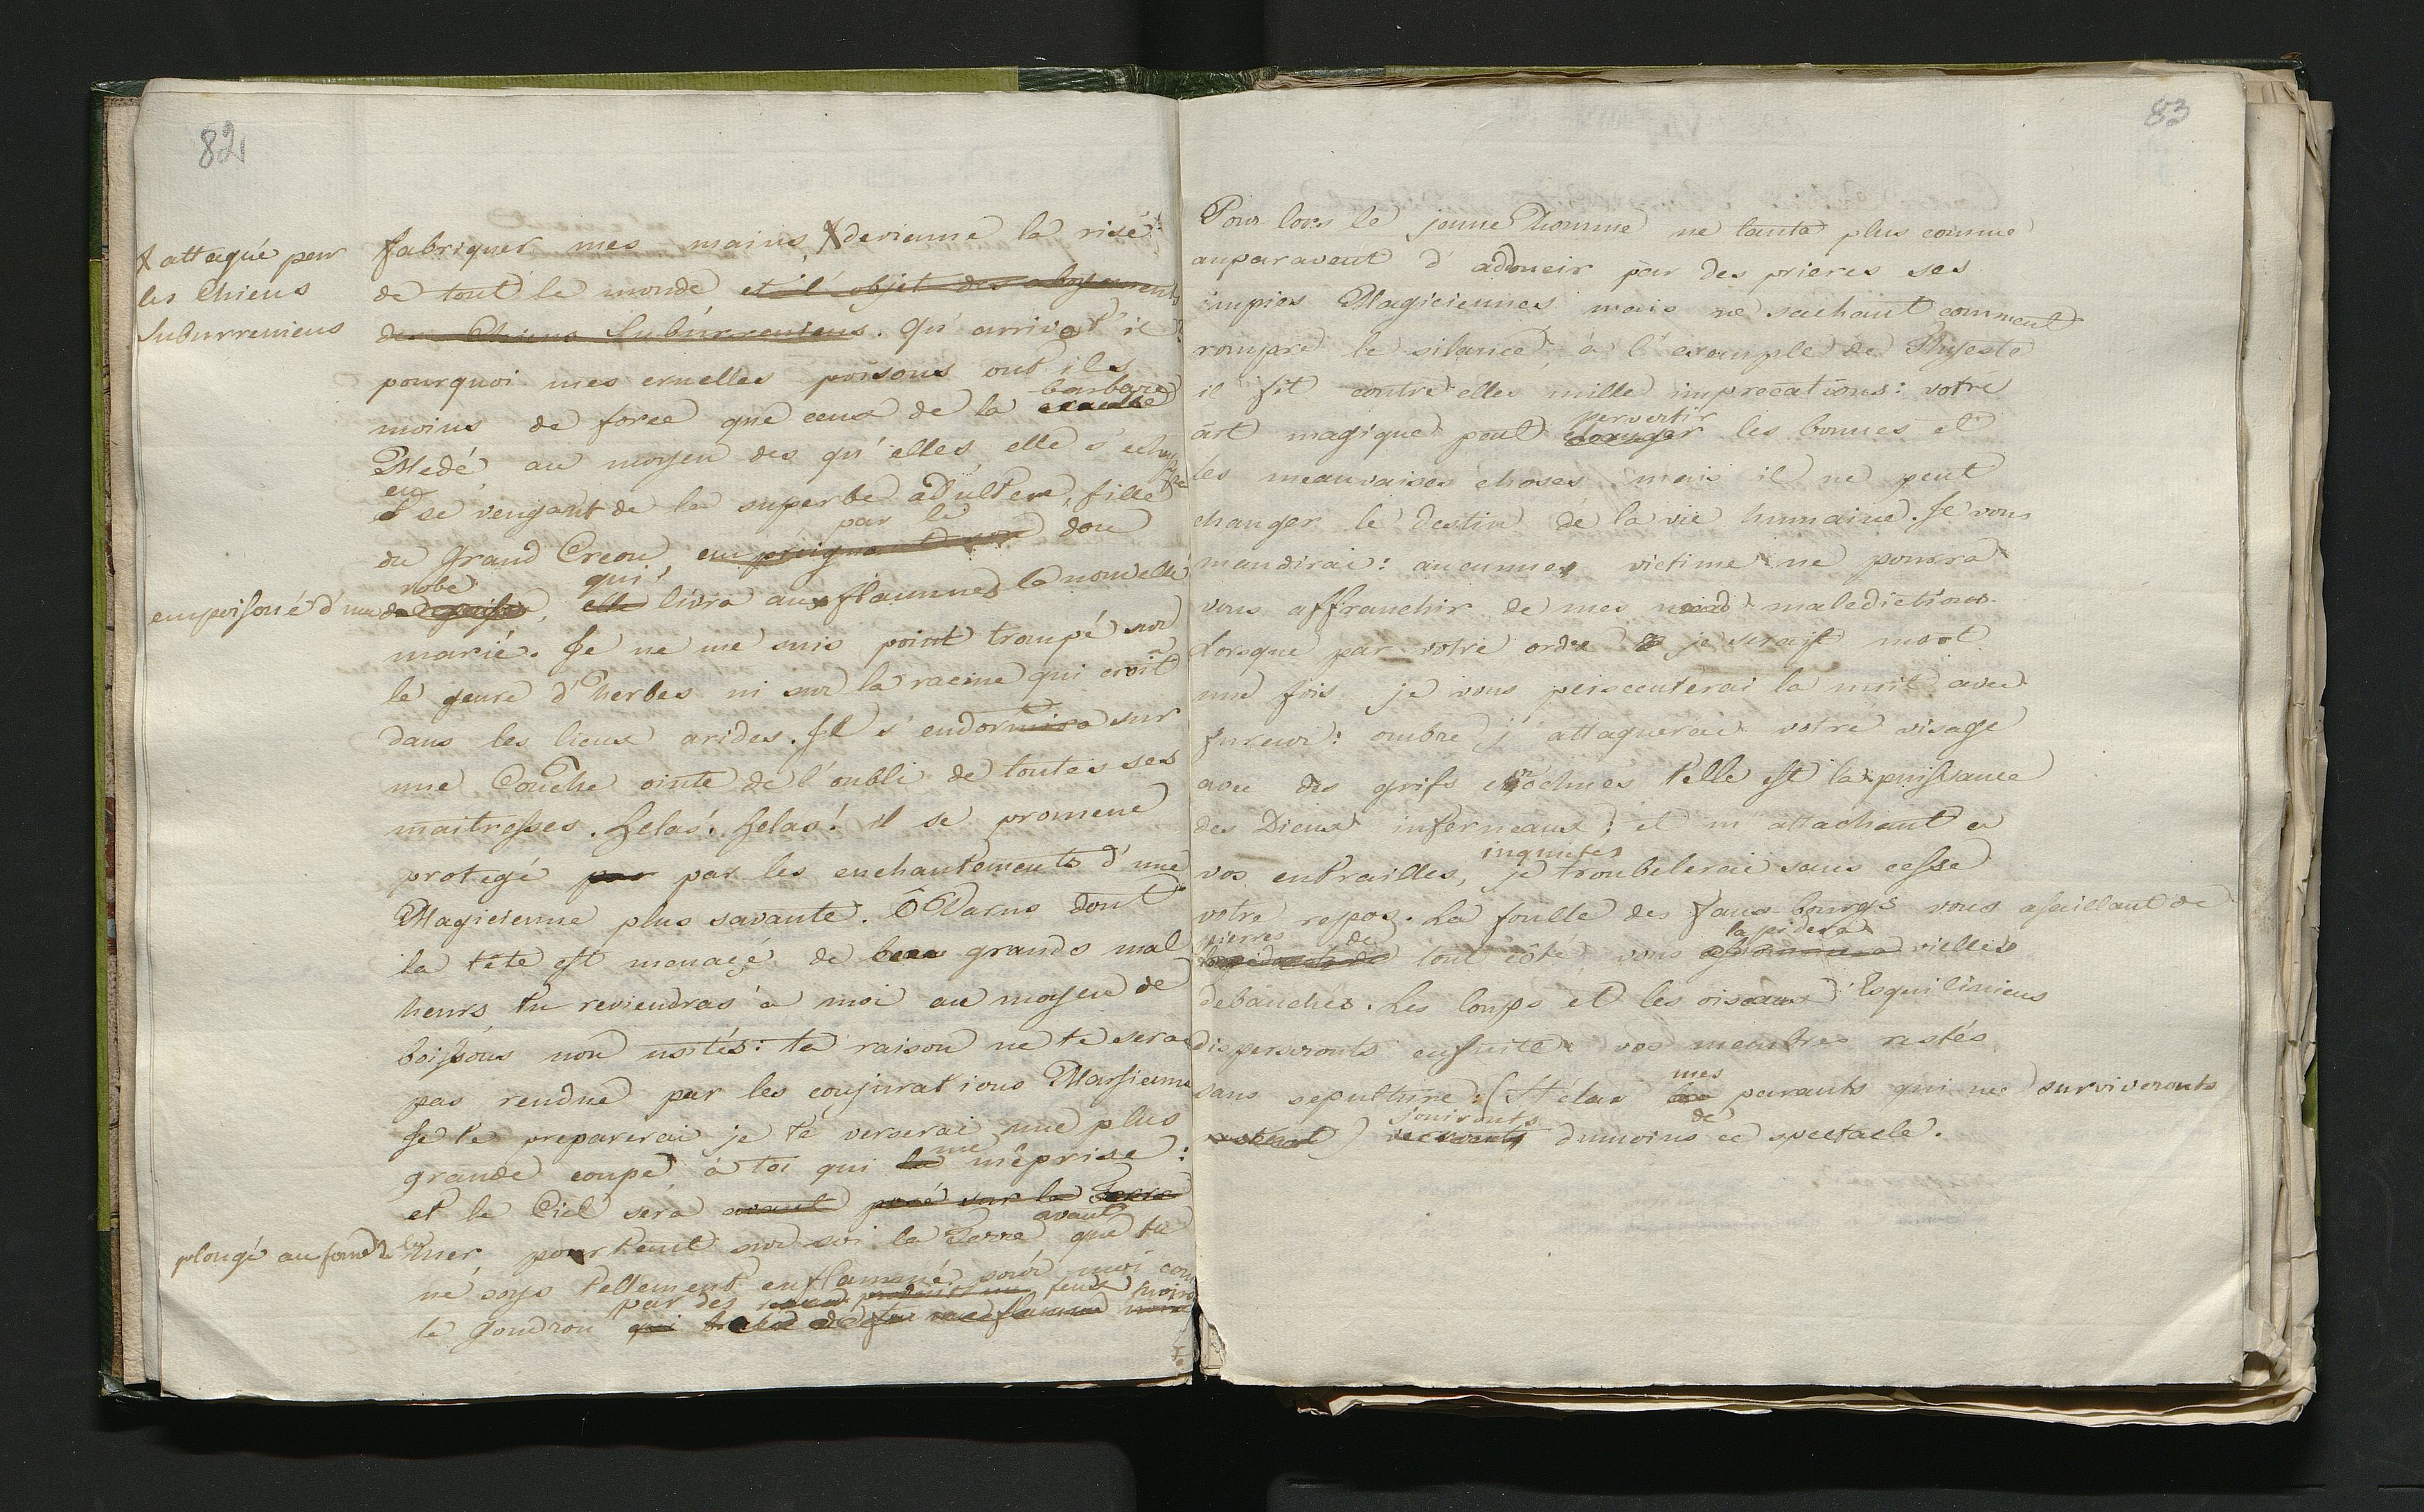 82
fabriquer mes mains, X devienne la risé
X attaqué par
les Chiens
Suburreniens
de tout le monde et l'objet des aboyements
des Chiens Suburreniens. Qu'arrivat'il
pourquoi mes cruelles poisons ont ils
barbare
moins de force que ceux de la cruelle
Medé au moyen des qu'elles, elle s'echappa
en
se vengeant de la superbe adultere, fille
par le
du Grand Creon, empreignant son don
robe qui,
empoisoné d'une elle livra aux flammes la nouvelle
marié. Je ne me suis point trompé sur
le genre d'herbes ni sur la racine qui croit
dans les lieux arides. Il s'endormira sur
une Couche ointe de l'oubli de toutes ses
maitresses. Helas! Helas! il se promene
protegé par par les enchantements d'une
Magicienne plus savante. Ô Varus dont
la tête est menacé de grands mal
heurs, tu reviendras à moi au moyen de
boissons non usités: ta raison ne te sera
pas rendue par les conjurations Marsienne
Je te preparerai je te verserai une plus
me
grande coupe, à toi qui la méprise:
et le Ciel sera avant posé sur la Terre
avant
plongé au fond de la mer, portant sur soi la Terre que tu
ne soys tellement enflammé pour moi com
par des feux noirs
le goudron qui brule de feu flamme noire
83
Pour lors le jeune homme ne tanta plus comme
auparavent d'adoucir par des prieres ses
impies Magiciennes mais ne sachant comment
rompre le silance, à l'example de Thyeste
il fit contre elles mille imprecations: votre
pervertir
art magique peut changer les bonnes et
les meauvaises choses mais il ne peut
changer le destin de la vie humaine. Je vous
maudirai: aucunne victime ne pourra
vous affranchir de mes maledictions.
Lorsque par votre ordre je serait mort
une fois je vous perscenterai la nuit avec
fureur: ombre j'attaquerai votre visage
avec des grifs crochues telle est la puissance
des Dieux infernaux; et m'attachant a
inquietes
vos entrailles, je troubelerai sans cesse
votre repos. La foulle des faux bourgs vous asaillant de
pierres de lapidera
tout côté, vous assommera vielles
debauches. Les loups et les oiseaux Esquiliniens
disperseronts ensuite vos membres restés
mes
sans sepulture: (Hélas les parants qui me surviveronts
jouironts de
verronts dumoins ce spectacle.